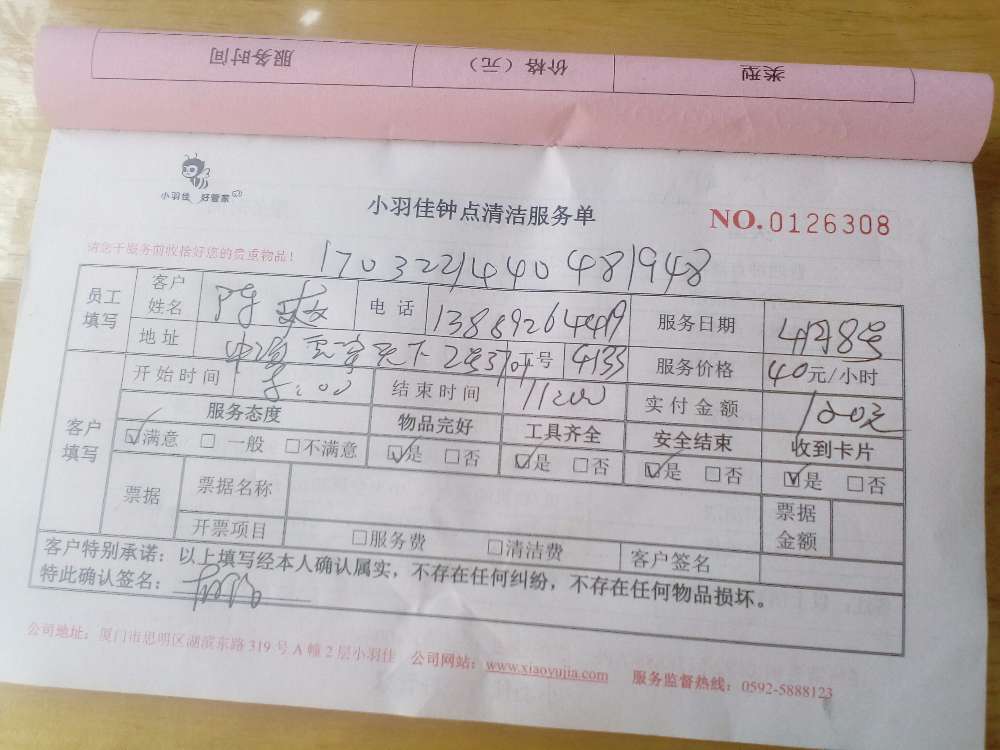 服务时间 价格（元） 类型
小羽佳 好管家
小羽佳钟点清洁服务单
NO.0126308
请您于服务前收拾好您的贵重物品！
170322144048 1948
员工填写 客户姓名 陈 电话 服务日期 4月8号
地址 2号 号 4133 服务价格 40元/小时
开始时间 8:00 结束时间 11:00 实付金额
客户填写 服务态度 物品完好 工具齐全 安全结束 收到卡片
☑满意 □一般 □不满意 ☑是 □否 ☑是 □否 ☑是 □否 ☑是 □否
票据 票据名称 票据金额
开票项目 □服务费 □清洁费 客户签名
客户特别承诺：以上填写经本人确认属实，不存在任何纠纷，不存在任何物品损坏。
特此确认签名：
公司地址：厦门市思明区湖滨东路319号A幢2层小羽佳 公司网站：www.xiaoyujia.com 服务监督热线：0592-5888123